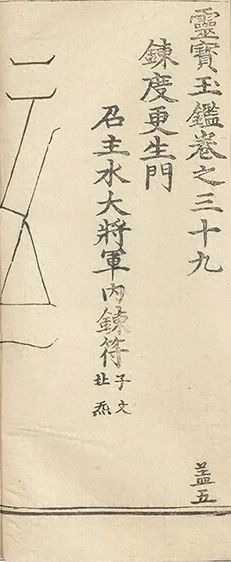 靈寶玉鑑卷之三十九
盖五
鍊度更生門
召主水大將軍內鍊符子文
北炁